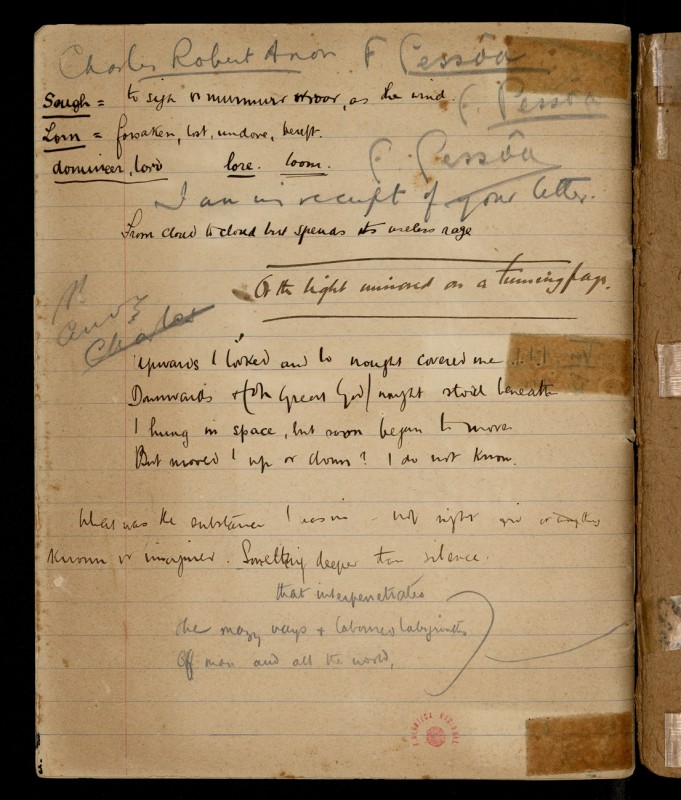 Charles Robert Anon F Pessôa
Sough = to sigh or murmur or roar, as the wind.
F. Pessôa
Lorn = forsaken, lost, undone, bereft.
domineer, lord lore. loom.
F. Pessôa
I am in receipt of your letter.
From cloud to cloud but spends its useless rage
Or the light mirrored on a turning page.
Charles
Upwards I looked and lo nought covered me
Downwards & (oh Great God) nought stood beneath
I hung in space, but soon began to move
But moved I up or down? I do not know.
What was the substance I was in - not night or anything
Known or imagined. Something deeper than silence.
that interpenetrates
the mazy ways & laboured labyrinths
Of man and all the world,